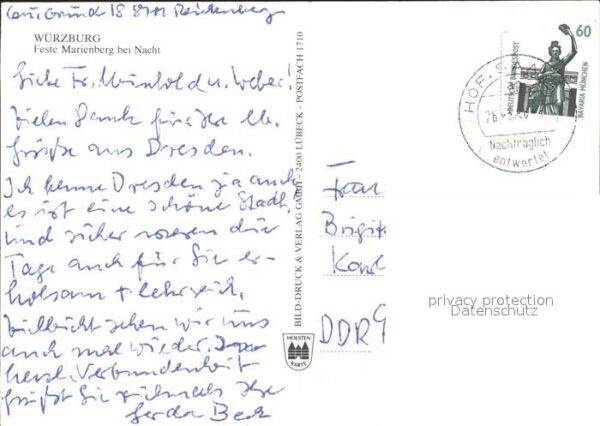 Grund 18 8701 Reichenberg
WÜRZBURG
Feste Marienberg bei Nacht
Liebe Fr. Weber!
Vielen Dank für Ihre lb.
Grüße aus Dresden.
Ich kenne Dresden ja auch
es ist eine schöne Stadt,
und sicher waren die
Tage auch für Sie er-
holsam + lehrreich.
Vielleicht sehen wir uns
auch mal wieder. In
herzl. Verbundenheit
grüßt Sie vielmals Ihre
Gerda Beck
BILD-DRUCK & VERLAG GMBH · 2400 LÜBECK · POSTFACH 1710
HOLSTEN
KARTE
60
DEUTSCHE BUNDESPOST
BAVARIA MÜNCHEN
HOF
Nachträglich
entwertet
Frau
Brigit
Karl
DDR 9
privacy protection
Datenschutz